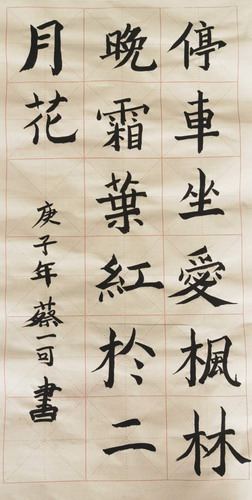 停車坐愛楓林
晚霜葉紅於二
月花
庚子年蔡一可書